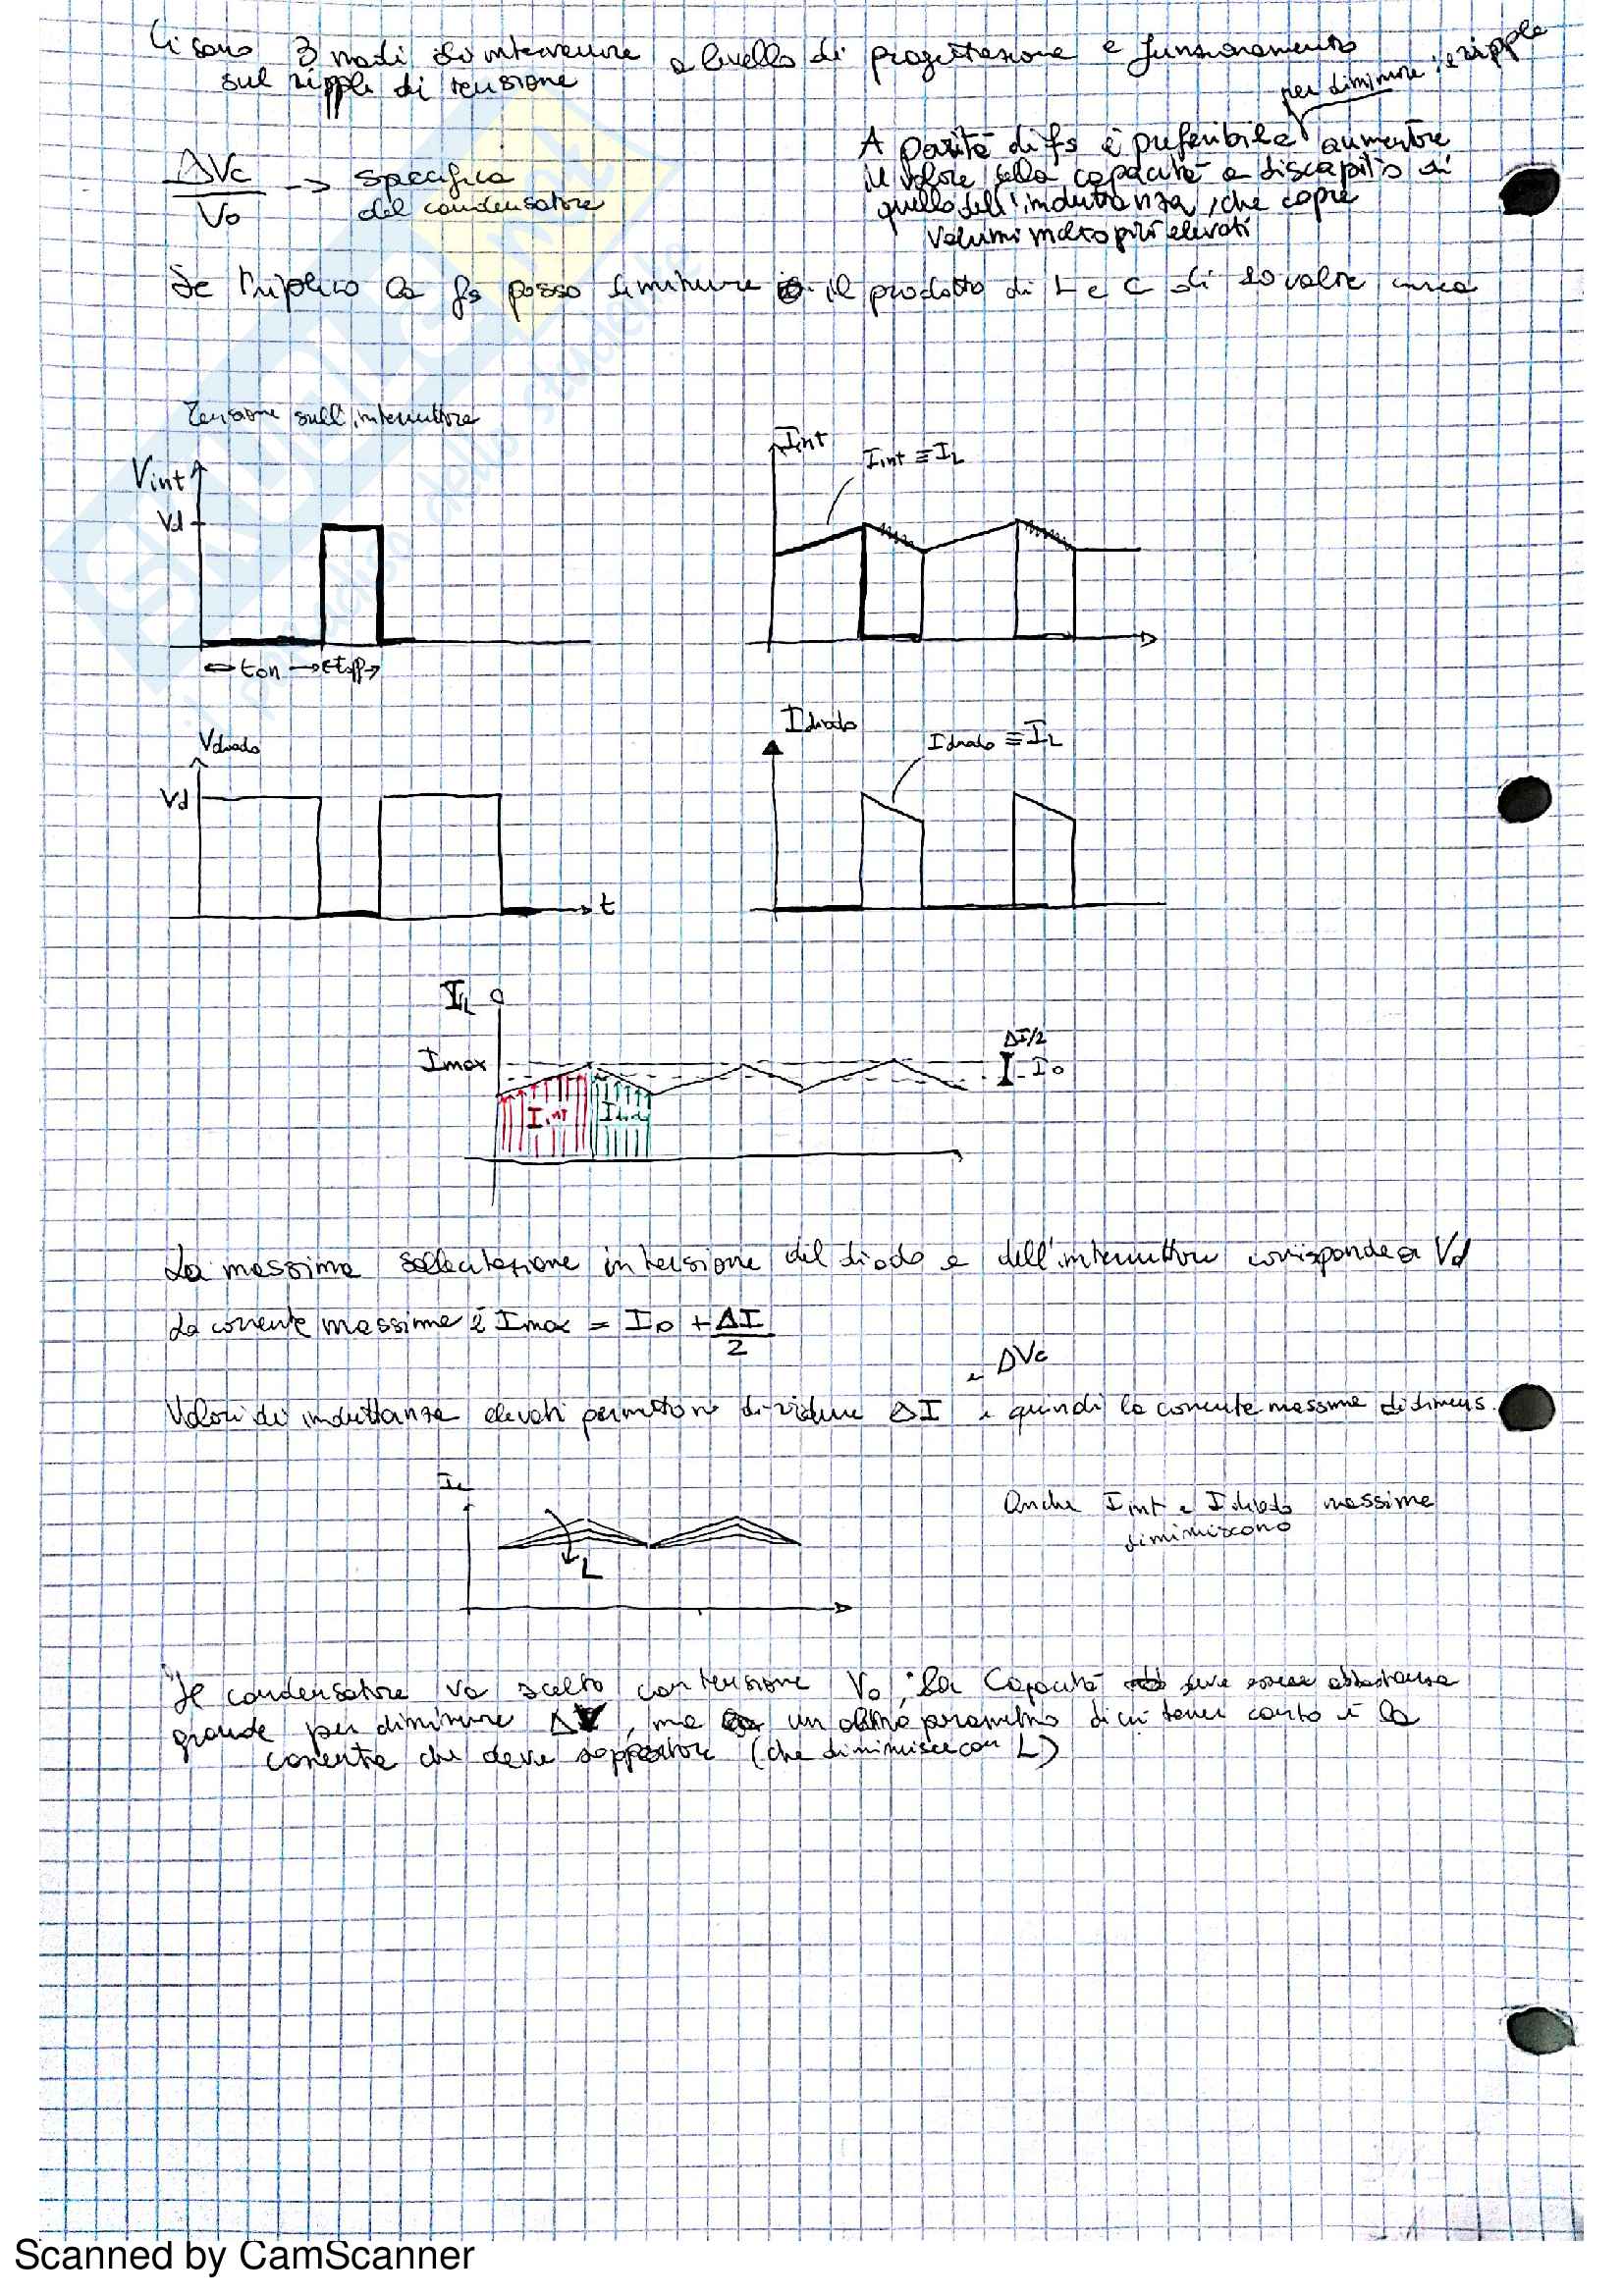 Ci sono 3 modi di intervenire a livello di progettazione e funzionamento
sul ripple di tensione
per diminuire il ripple
ΔVc / Vo -> specifica
del condensatore
A parità di fs è preferibile aumentare
il valore della capacità a discapito di
quello dell'induttanza, che copre
volumi molto più elevati
Se triplico la fs posso diminuire il prodotto di L e C di 10 volte circa
Tensione sull'interruttore
Vint
Vd
ton toff
Iint
Iint ≡ IL
Vdiodo
Vd
t
Idiodo
Idiodo ≡ IL
IL
Imax
ΔI/2
Io
Iint
Idiodo
La massima sollecitazione in tensione del diodo e dell'interruttore corrisponde a Vd
La corrente massima è Imax = Io + ΔI/2
e ΔVc
Valori di induttanza elevati permettono di ridurre ΔI e quindi la corrente massima di dimens.
IL
L
Anche Iint e Idiodo massime
diminuiscono
Il condensatore va scelto con tensione Vo, la capacità deve essere abbastanza
grande per diminuire ΔV, ma un altro parametro di cui tener conto è la
corrente che deve sopportare (che diminuisce con L)
Scanned by CamScanner